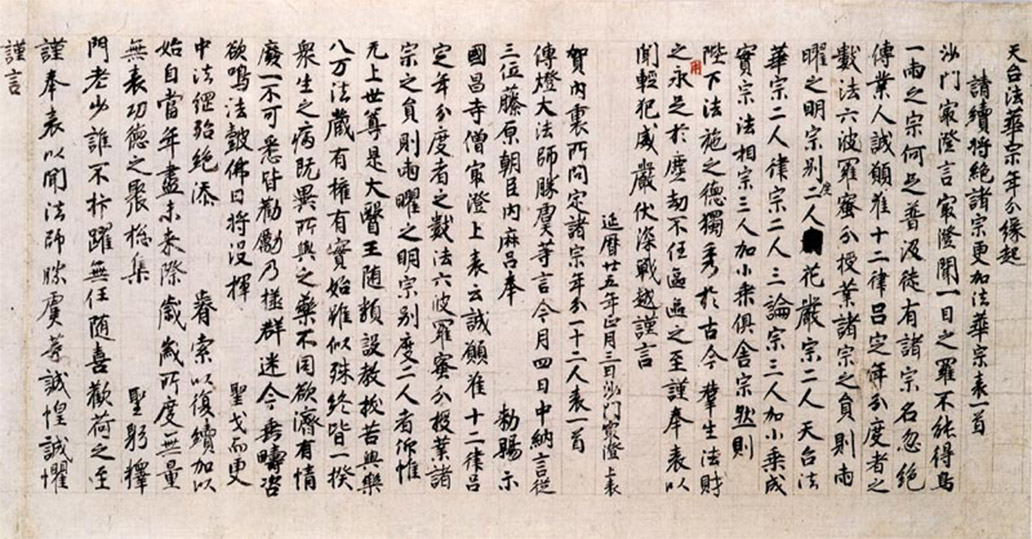 天台法華宗年分縁起
請續將絶諸宗更加法華宗表一首
沙門冣澄言冣澄聞一目之羅不能得鳥
一兩之宗何足普汲徒有諸宗名忽絶
傳業人誠願准十二律呂定年分度者之
數法六波羅蜜分授業諸宗之員則兩
曜之明宗別度二人花嚴宗二人天台法
華宗二人律宗二人三論宗三人加小乗成
實宗法相宗三人加小乗倶舎宗然則
陛下法施之德獨秀於古今羣生法財
之用永足於塵劫不任區區之至謹奉表以
聞輕犯威嚴伏深戰越謹言
延暦廿五年正月三日沙門冣澄上表
賀内裏所問定諸宗年分一十二人表一首
傳燈大法師勝虞等言今月四日中納言從
三位藤原朝臣内麻呂奉　勅賜示
國昌寺僧冣澄上表云誠願准十二律呂
定年分度者之數法六波羅蜜分授業諸
宗之員則兩曜之明宗別度二人者仰惟
无上世尊是大醫王随類設教抜苦與樂
八万法蔵有權有實始雖似殊終皆一揆
衆生之病既異所與之藥不同欲濟有情
廢一不可悉皆勸勵乃拯群迷今垂疇咨
欲鳴法皷佛日将没揮　聖戈而更
中法網殆絶添　睿索以復續加以
始自當年盡未来際歳歳所度無量
無表功德之聚惣集　聖躬釋
門老少誰不抃躍無任随喜歡荷之至
謹奉表以聞法師勝虞等誠惶誠懼
謹言